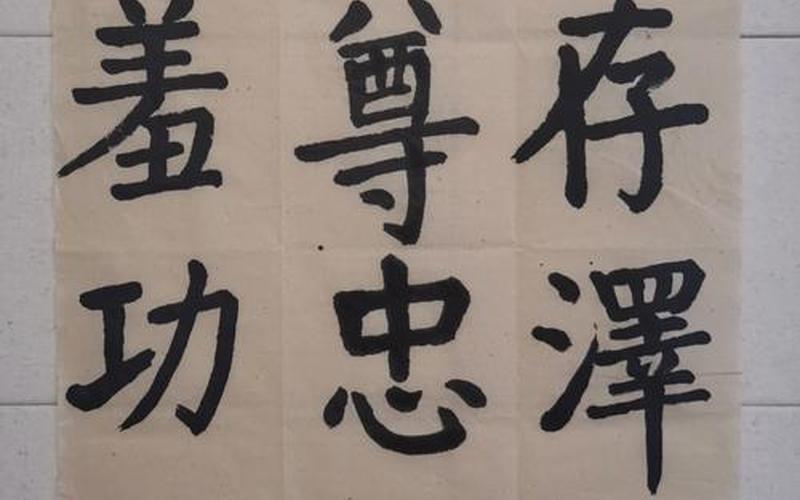 存澤
尊忠
羞功